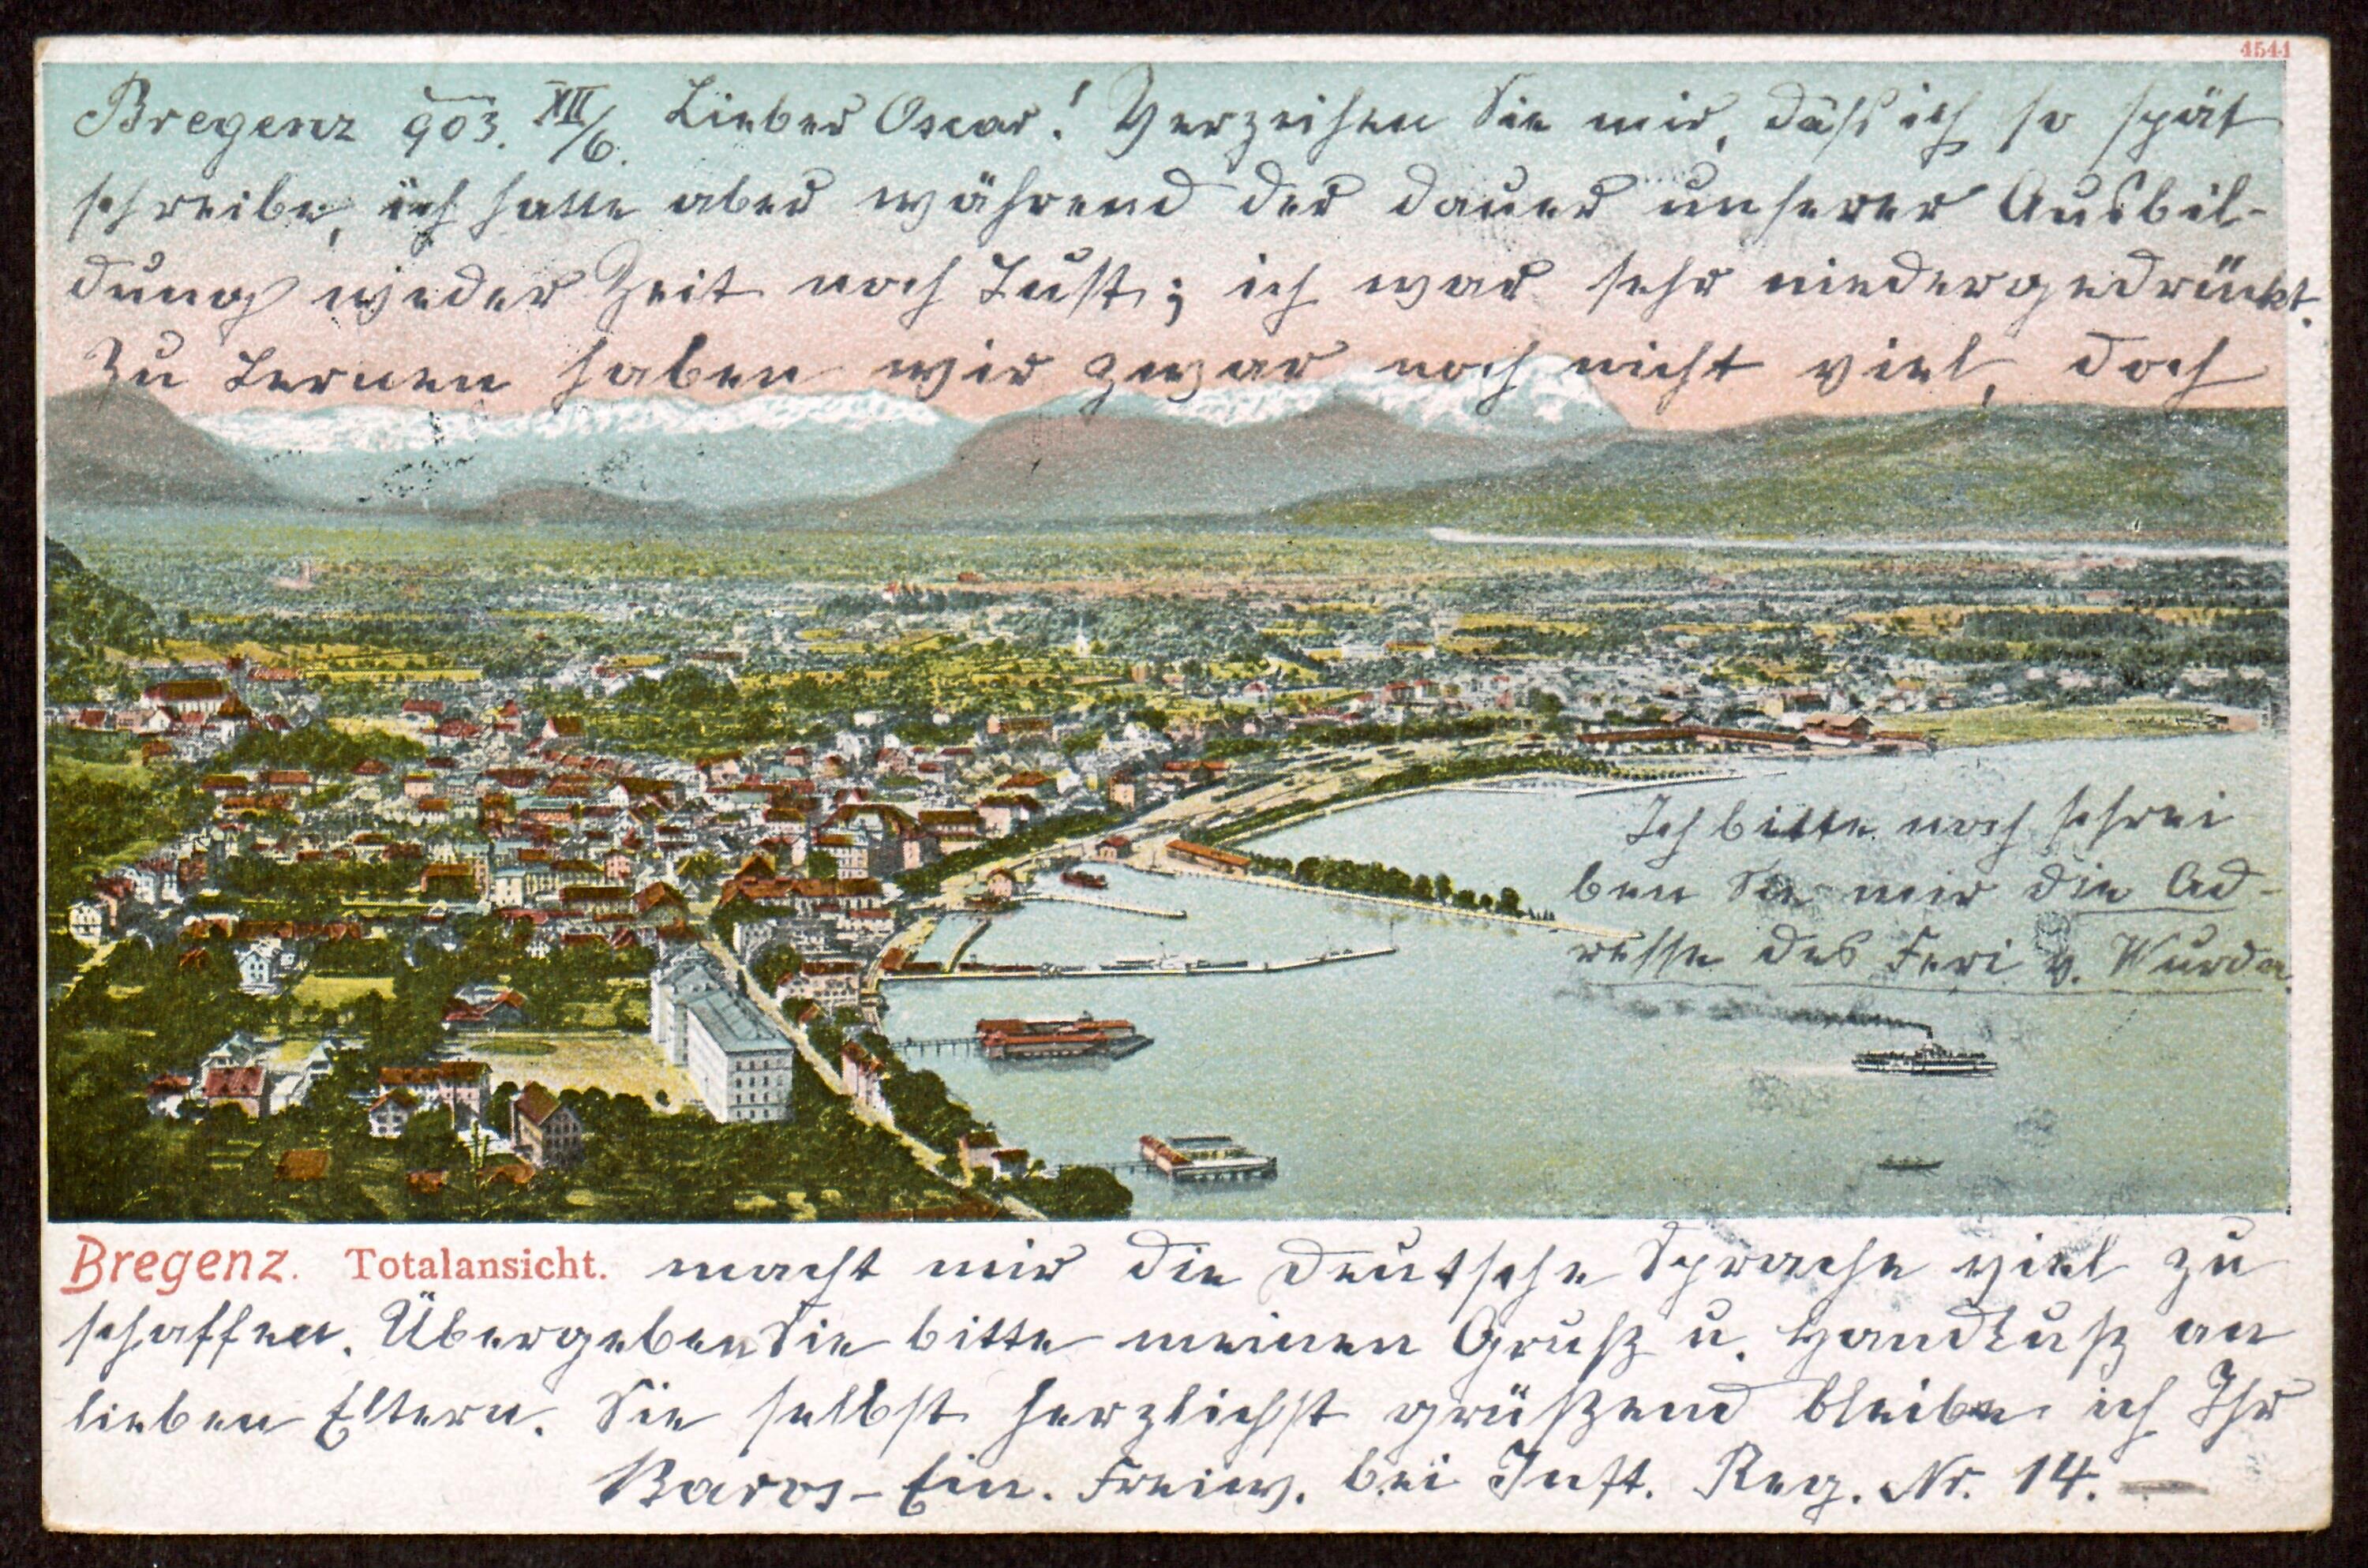 4541
Bregenz 903. XII/6. Lieber Oscar! Verzeihen Sie mir, daß ich so spät
schreibe, ich hatte aber während der dauer unserer Ausbil-
dung weder Zeit noch Lust; ich war sehr niedergedrückt.
Zu Lernen haben wir zwar noch nicht viel, doch
Ich bitte noch schrei
ben Sie mir die Ad-
resse des Feri v. Wurda
Bregenz. Totalansicht. macht mir die deutsche Sprache viel zu
schaffen. Übergeben Sie bitte meinen Gruß u. Handkuß an
lieben Eltern. Sie selbst herzlichst grüßend bleibe ich Ihr
Baros – Ein. Freiw. bei Inft. Reg. Nr. 14. —